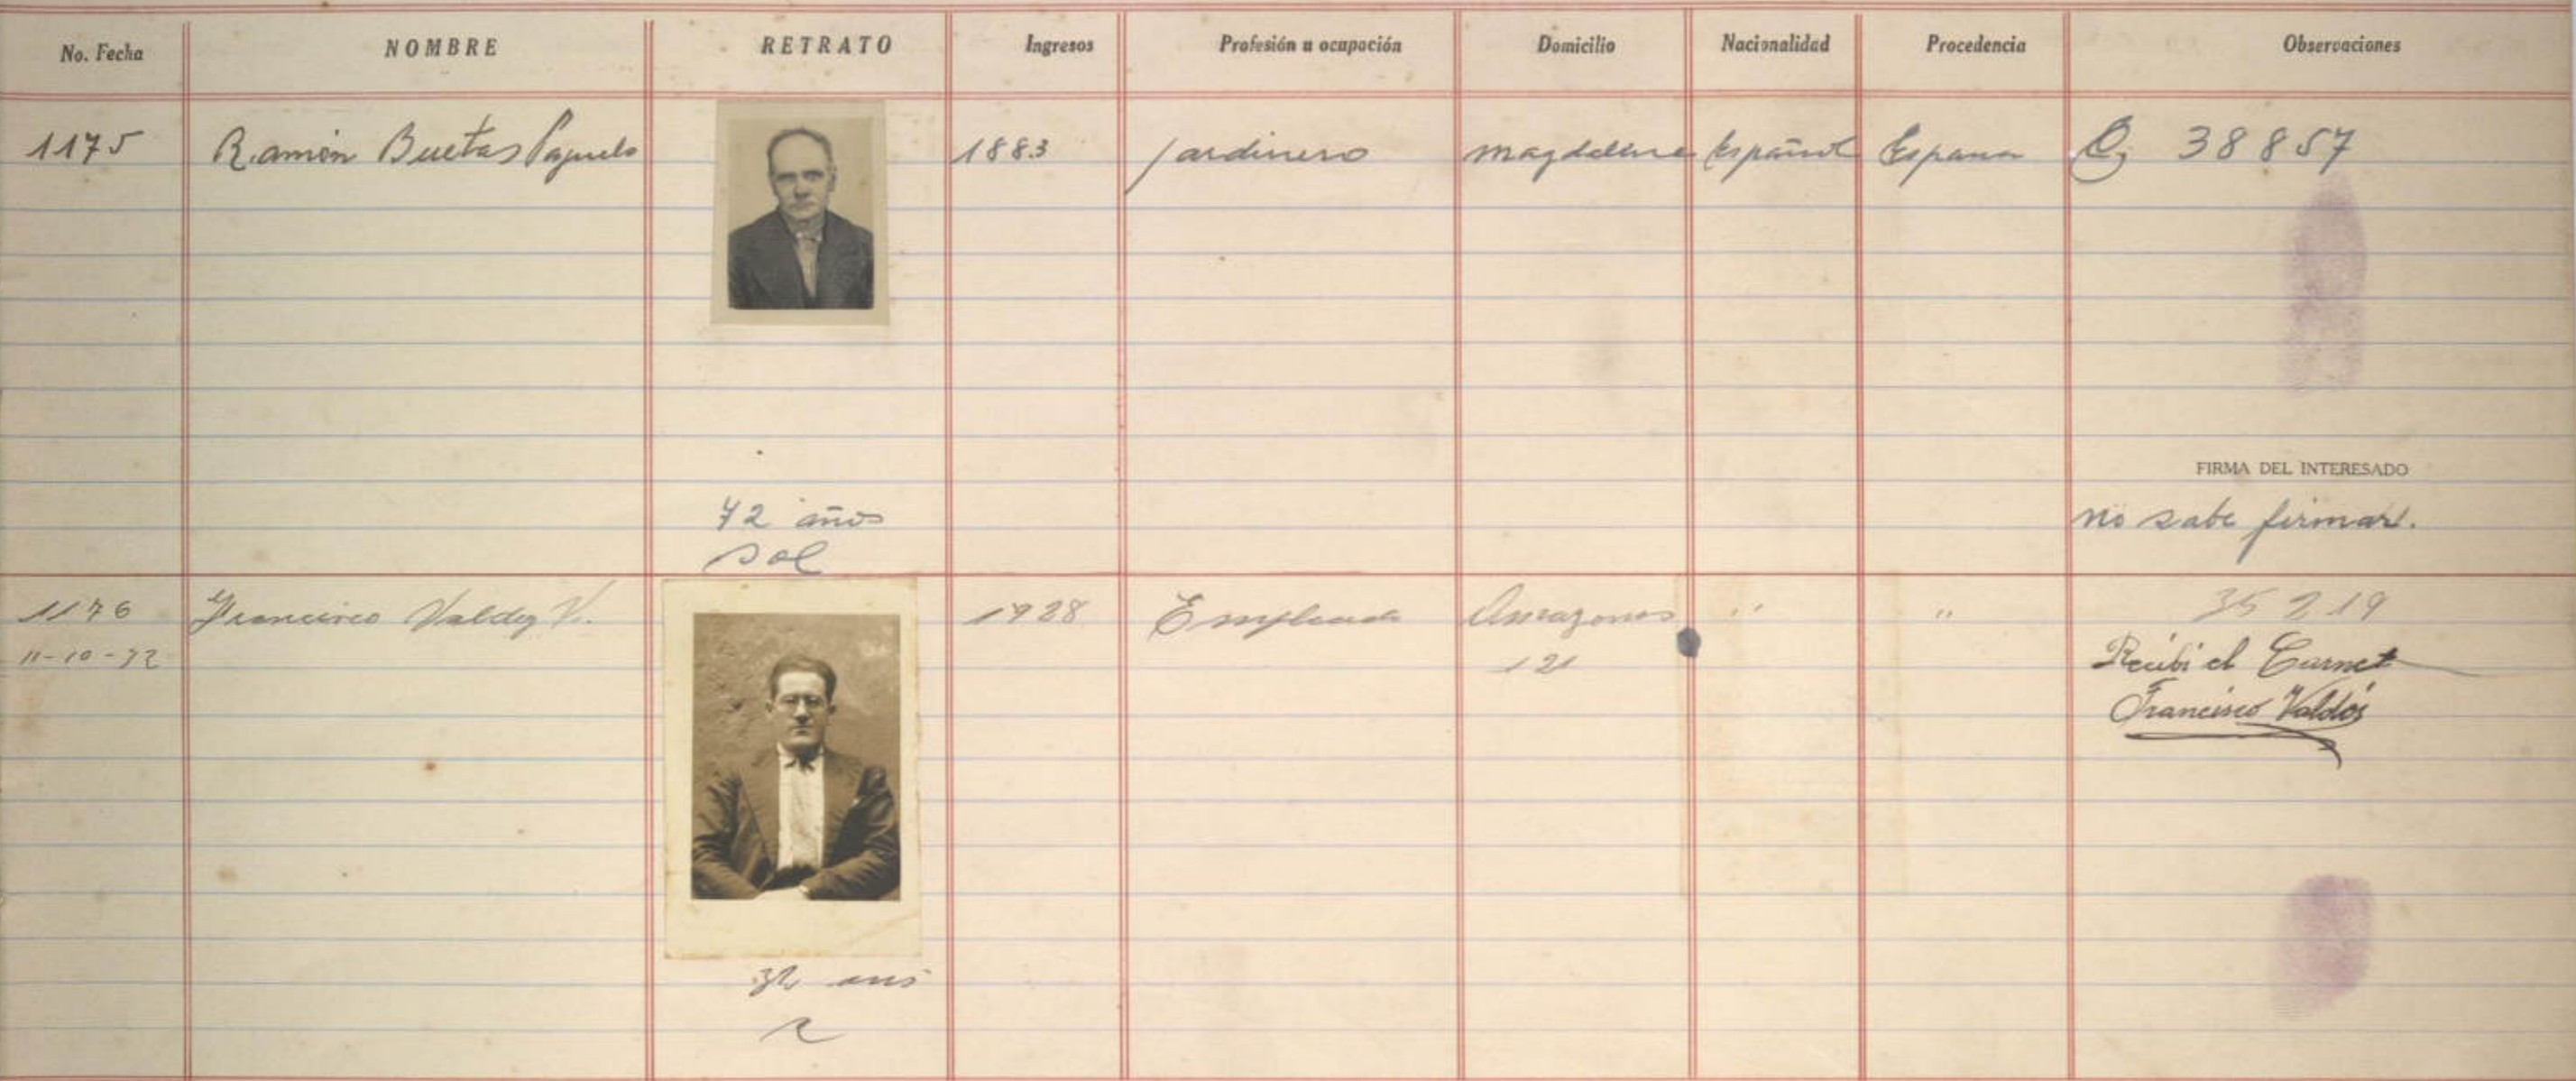 No. Fecha NOMBRE RETRATO Ingresos Profesión u ocupación Domicilio Nacionalidad Procedencia Observaciones
1175 Ramón Buetas 1883 jardinero Magdalena Español España 38857
FIRMA DEL INTERESADO
72 años no sabe firmar.
sol
1176 Francisco Valdez V. 1928 Empleado Amazonas " " 35219
121 Recibi el Carnet
Francisco Valdés